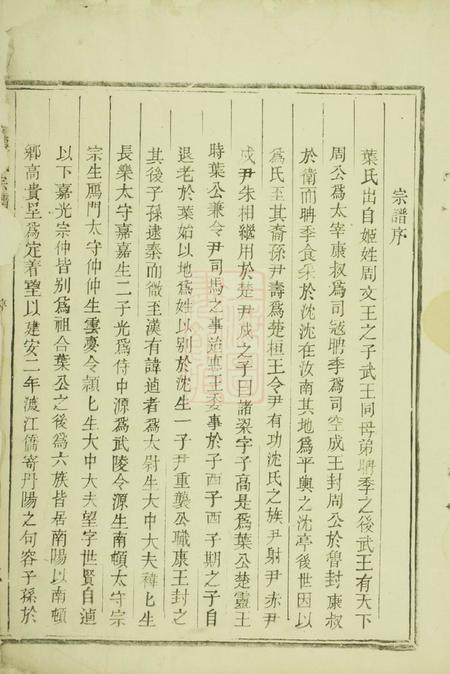 宗譜序
葉氏出自姬姓周文王之子武王同母弟聃季之後武王有天下
周公爲太宰康叔爲司寇聃季爲司空成王封周公於魯封康叔
於衛而聃季食采於沈沈在汝南其地爲平輿之沈亭後世因以
爲氏至其裔孫尹壽爲楚桓王令尹有功沈氏之族尹射尹赤尹
戍尹朱相繼用於楚尹戍之子曰諸梁字子高是爲葉公楚靈王
時葉公兼令尹司馬之事治惠王委事於子西子西子期之子自
退老於葉始以地爲姓以別於沈生一子尹重襲公職康王封之
其後子孫逮秦而微至漢有諱逌者爲大尉生大中大夫禕匕生
長樂太守嘉嘉生二子光爲侍中源爲武陵令源生南頓太守宗
宗生鴈門太守仲仲生雲慶令潁匕生大中大夫望字世賢自逌
以下嘉光宗仲皆別爲祖合葉公之後爲六族皆居南陽以南頓
鄉高貴里爲定著望以建安二年渡江僑寄丹陽之句容子孫於